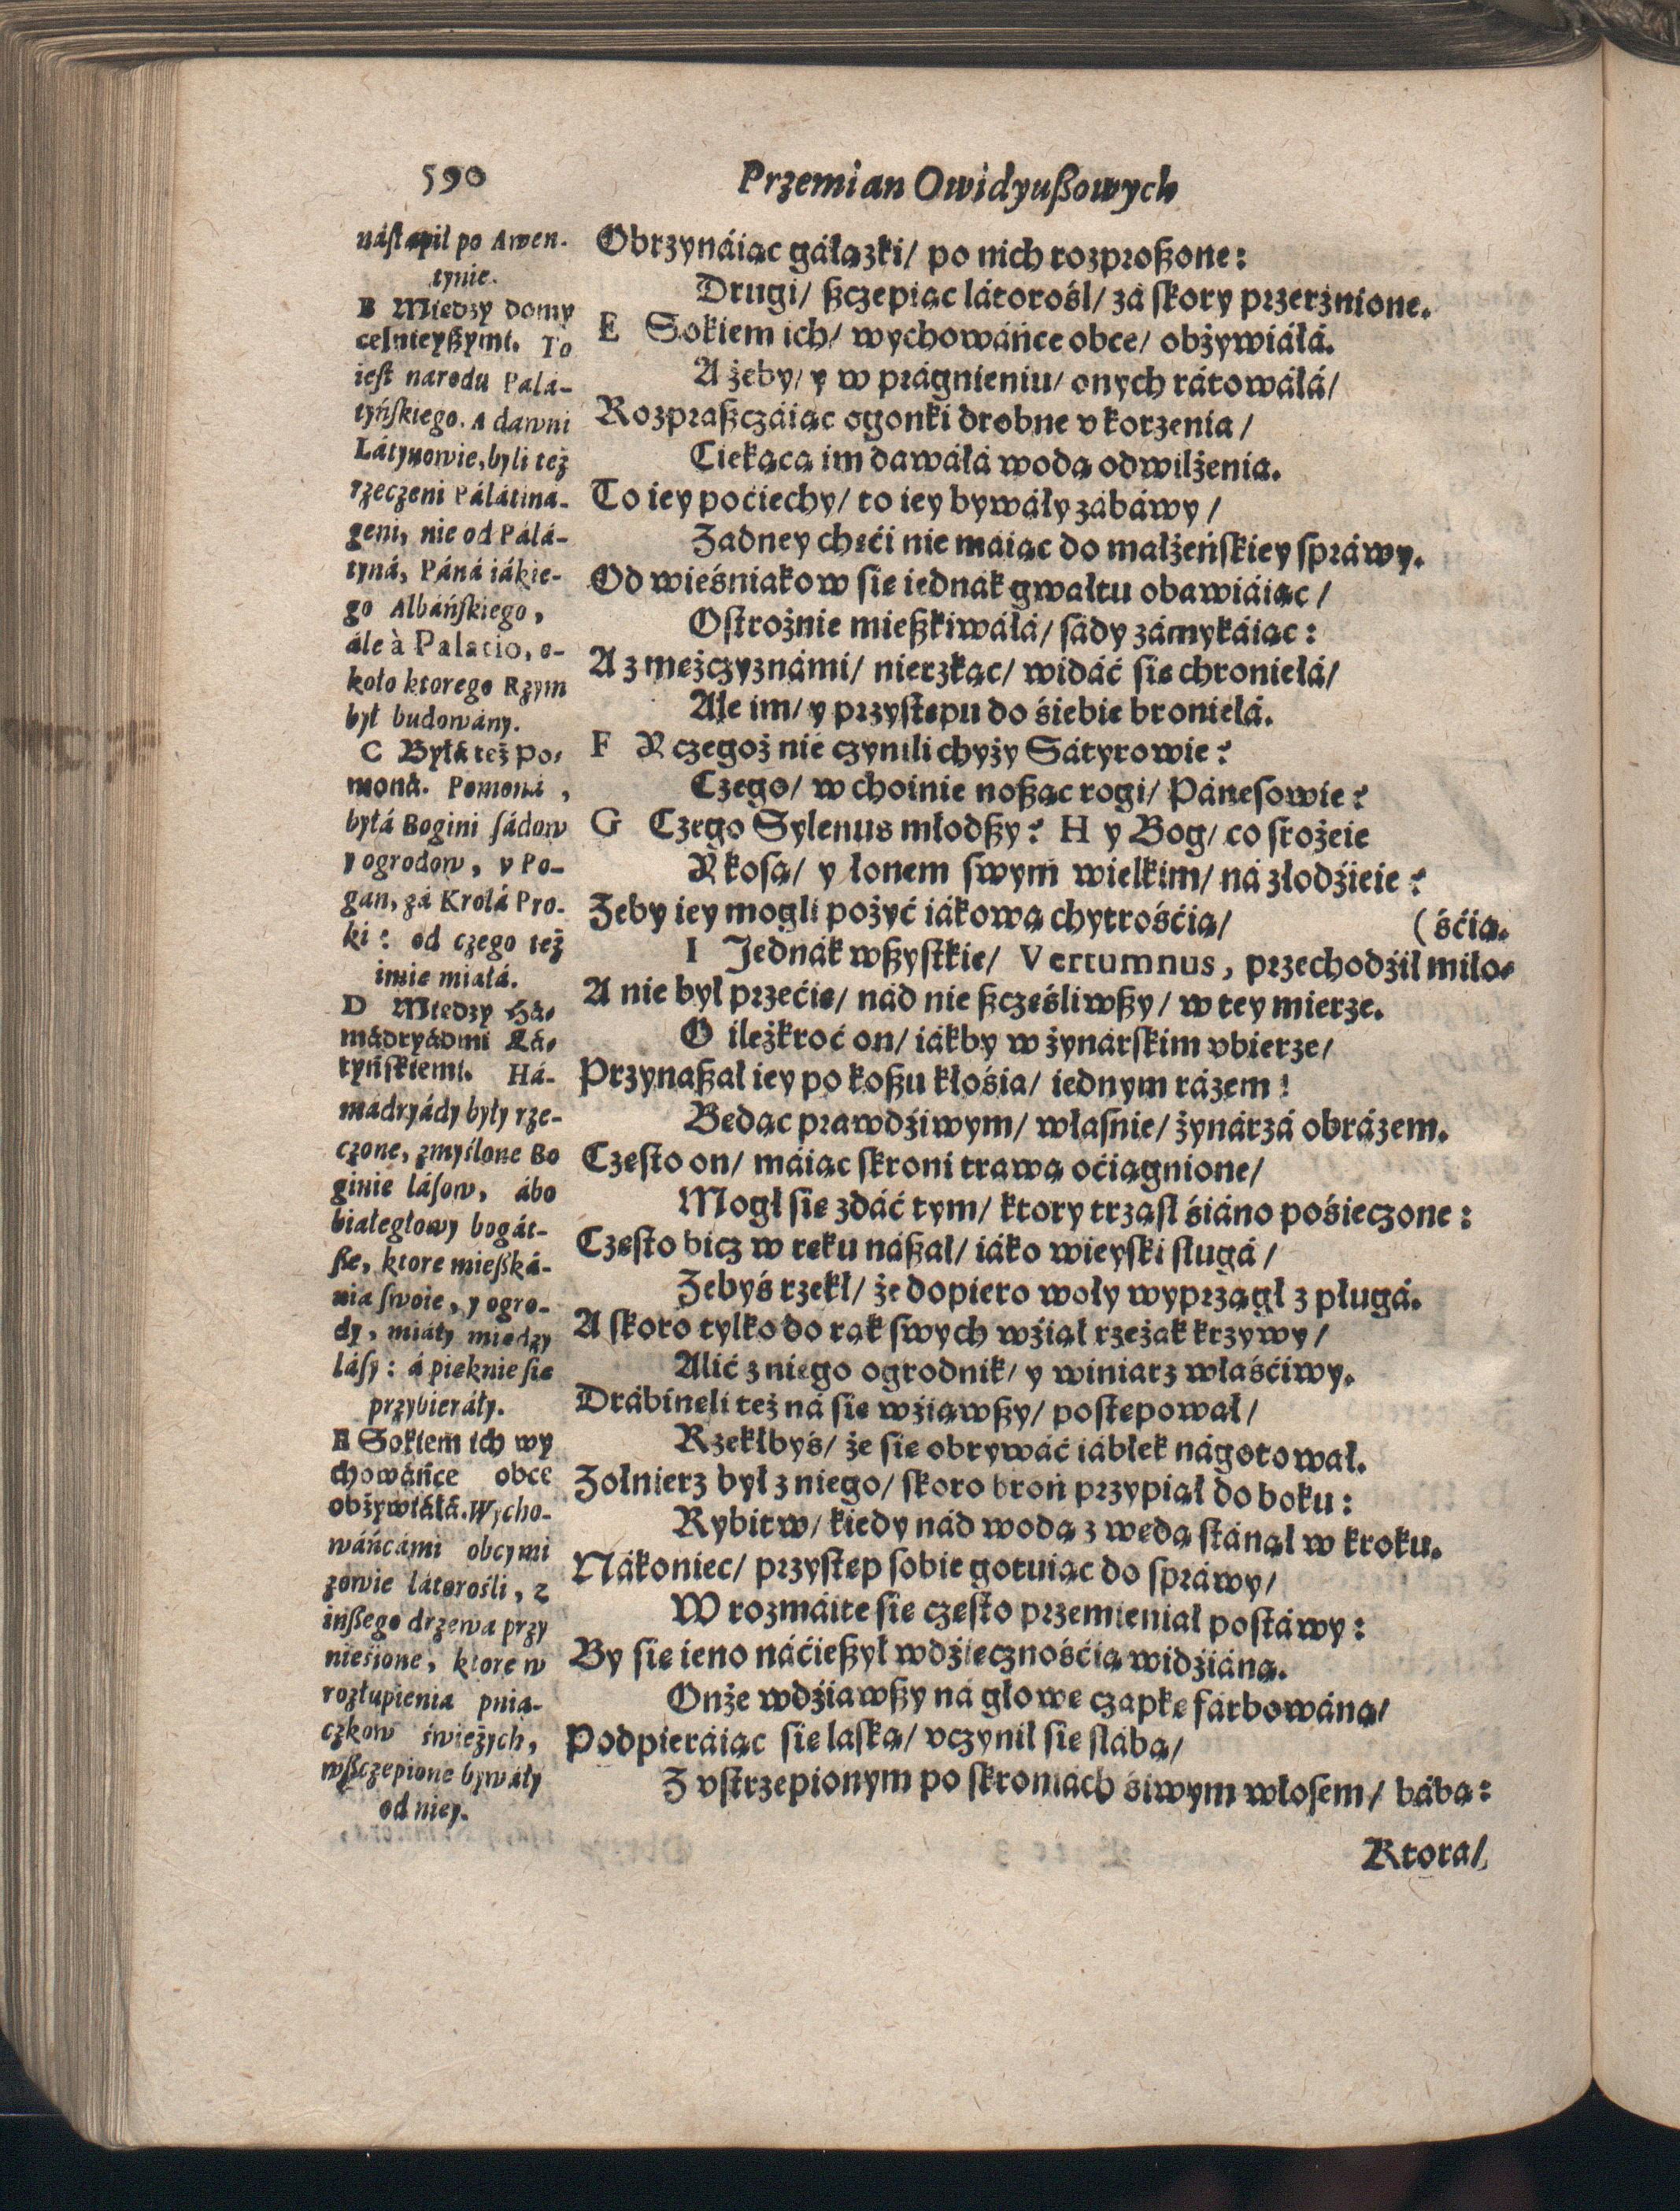 590
Przemian Owidyußowych
nástąpił po Awen-
tynie.
B Miedzy domy
celnieyßymi. To
iest narodu Palá-
tyńskiego. A dawni
Látynowie, byli też
rzeczeni Pálátina-
geni, nie od Pálá-
tyná, Páná iákie-
go Albáńskiego,
ále à Palatio, o-
koło ktorego Rzym
był budowány.
C Byłá też Po-
moná. Pomoná,
byłá Bogini sádow
y ogrodow, v Po-
gan, zá Krolá Pro-
ki: od czego też
imie miałá.
D Miedzy Há-
mádryádmi Lá-
tyńskiemi. Há-
mádryády były rze-
czone, zmyślone Bo
ginie lásow, ábo
białegłowy bogát-
ße, ktore mießká-
nia swoie, y ogro-
dy, miáły miedzy
lásy: á pieknie sie
przybieráły.
E Sokiem ich wy
chowáńce obce
obżywiáłá. Wycho-
wáńcámi obcymi
zowie látorośli, z
inßego drzewa przy
nieśione, ktore w
rozłupienia pnia-
czkow świeżych,
wßczepione bywáły
od niey.
Obrzynáiąc gáłązki/ po nich rozproßone:
Drugi/ ßczepiąc látorośl/ zá skory przerżnione.
E Sokiem ich/ wychowáńce obce/ obżywiáłá.
A żeby/ y w prágnieniu/ onych rátowáłá/
Rozpraßczáiąc ogonki drobne v korzenia/
Ciekącą im dawáłá wodą odwilżenia.
To iey poćiechy/ to iey bywáły zábáwy/
Zadney chęći nie máiąc do małżeńskiey spráwy.
Od wieśniakow sie iednák gwałtu obawiáiąc/
Ostrożnie mießkiwáłá/ sády zámykáiąc:
A z mężczyznámi/ nierzkąc/ widáć sie chroniełá/
Ale im/ y przystępu do śiebie broniełá.
F Y czegoż nie czynili chyży Sátyrowie?
Czego/ w choinie noßąc rogi/ Pánesowie?
G Czego Sylenus młodßy? H y Bog/ co srożeie
Y kosą/ y łonem swym wielkim/ ná złodźieie?
Zeby iey mogli pożyć iákową chytrośćią/
(śćią.
I Jednák wßystkie/ Vertumnus, przechodźił miło-
A nie był przećię/ nád nie ßczęśliwßy/ w tey mierze.
O ileżkroć on/ iákby w żynárskim vbierze/
Przynaßał iey po koßu kłośia/ iednym rázem!
Będąc prawdźiwym/ własnie/ żynárzá obrázem.
Często on/ máiąc skroni trawą oćiągnione/
Mogł sie zdáć tym/ ktory trząsł śiáno pośieczone:
Często bicz w ręku náßał/ iáko wieyski sługá/
Zebyś rzekł/ że dopiero woły wyprzągł z pługá.
A skoro tylko do rąk swych wźiął rzeżak krzywy/
Alić z niego ogrodnik/ y winiarz właśćiwy.
Drábineli też ná się wźiąwßy/ postępował/
Rzekłbyś/ że sie obrywáć iábłek nágotował.
Zołnierz był z niego/ skoro broń przypiął do boku:
Rybitw/ kiedy nád wodą z wędą stánął w kroku.
Nákoniec/ przystęp sobie gotuiąc do spráwy/
W rozmáite sie często przemieniał postáwy:
By sie ieno náćießył wdźięcznośćią widźiáną.
Onże wdźiawßy ná głowę czapkę farbowáną/
Podpieráiąc się laską/ vczynił sie słábą/
Z vstrzępionym po skroniách śiwym włosem/ bábą:
Ktora/